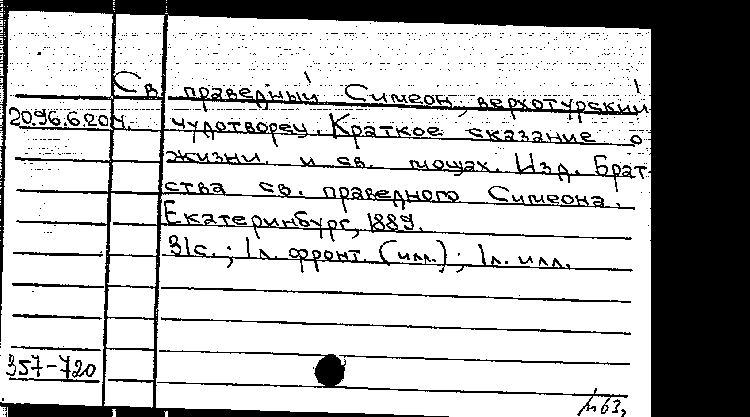 Св. праведный Симеон, верхотурский
20.96.6.204. чудотворец. Краткое сказание о
жизни и св. мощах. Изд. Брат-
ства св. праведного Симеона.
Екатеринбург, 1889.
31с.; 1л. фронт. (илл.); 1л. илл.
357-720